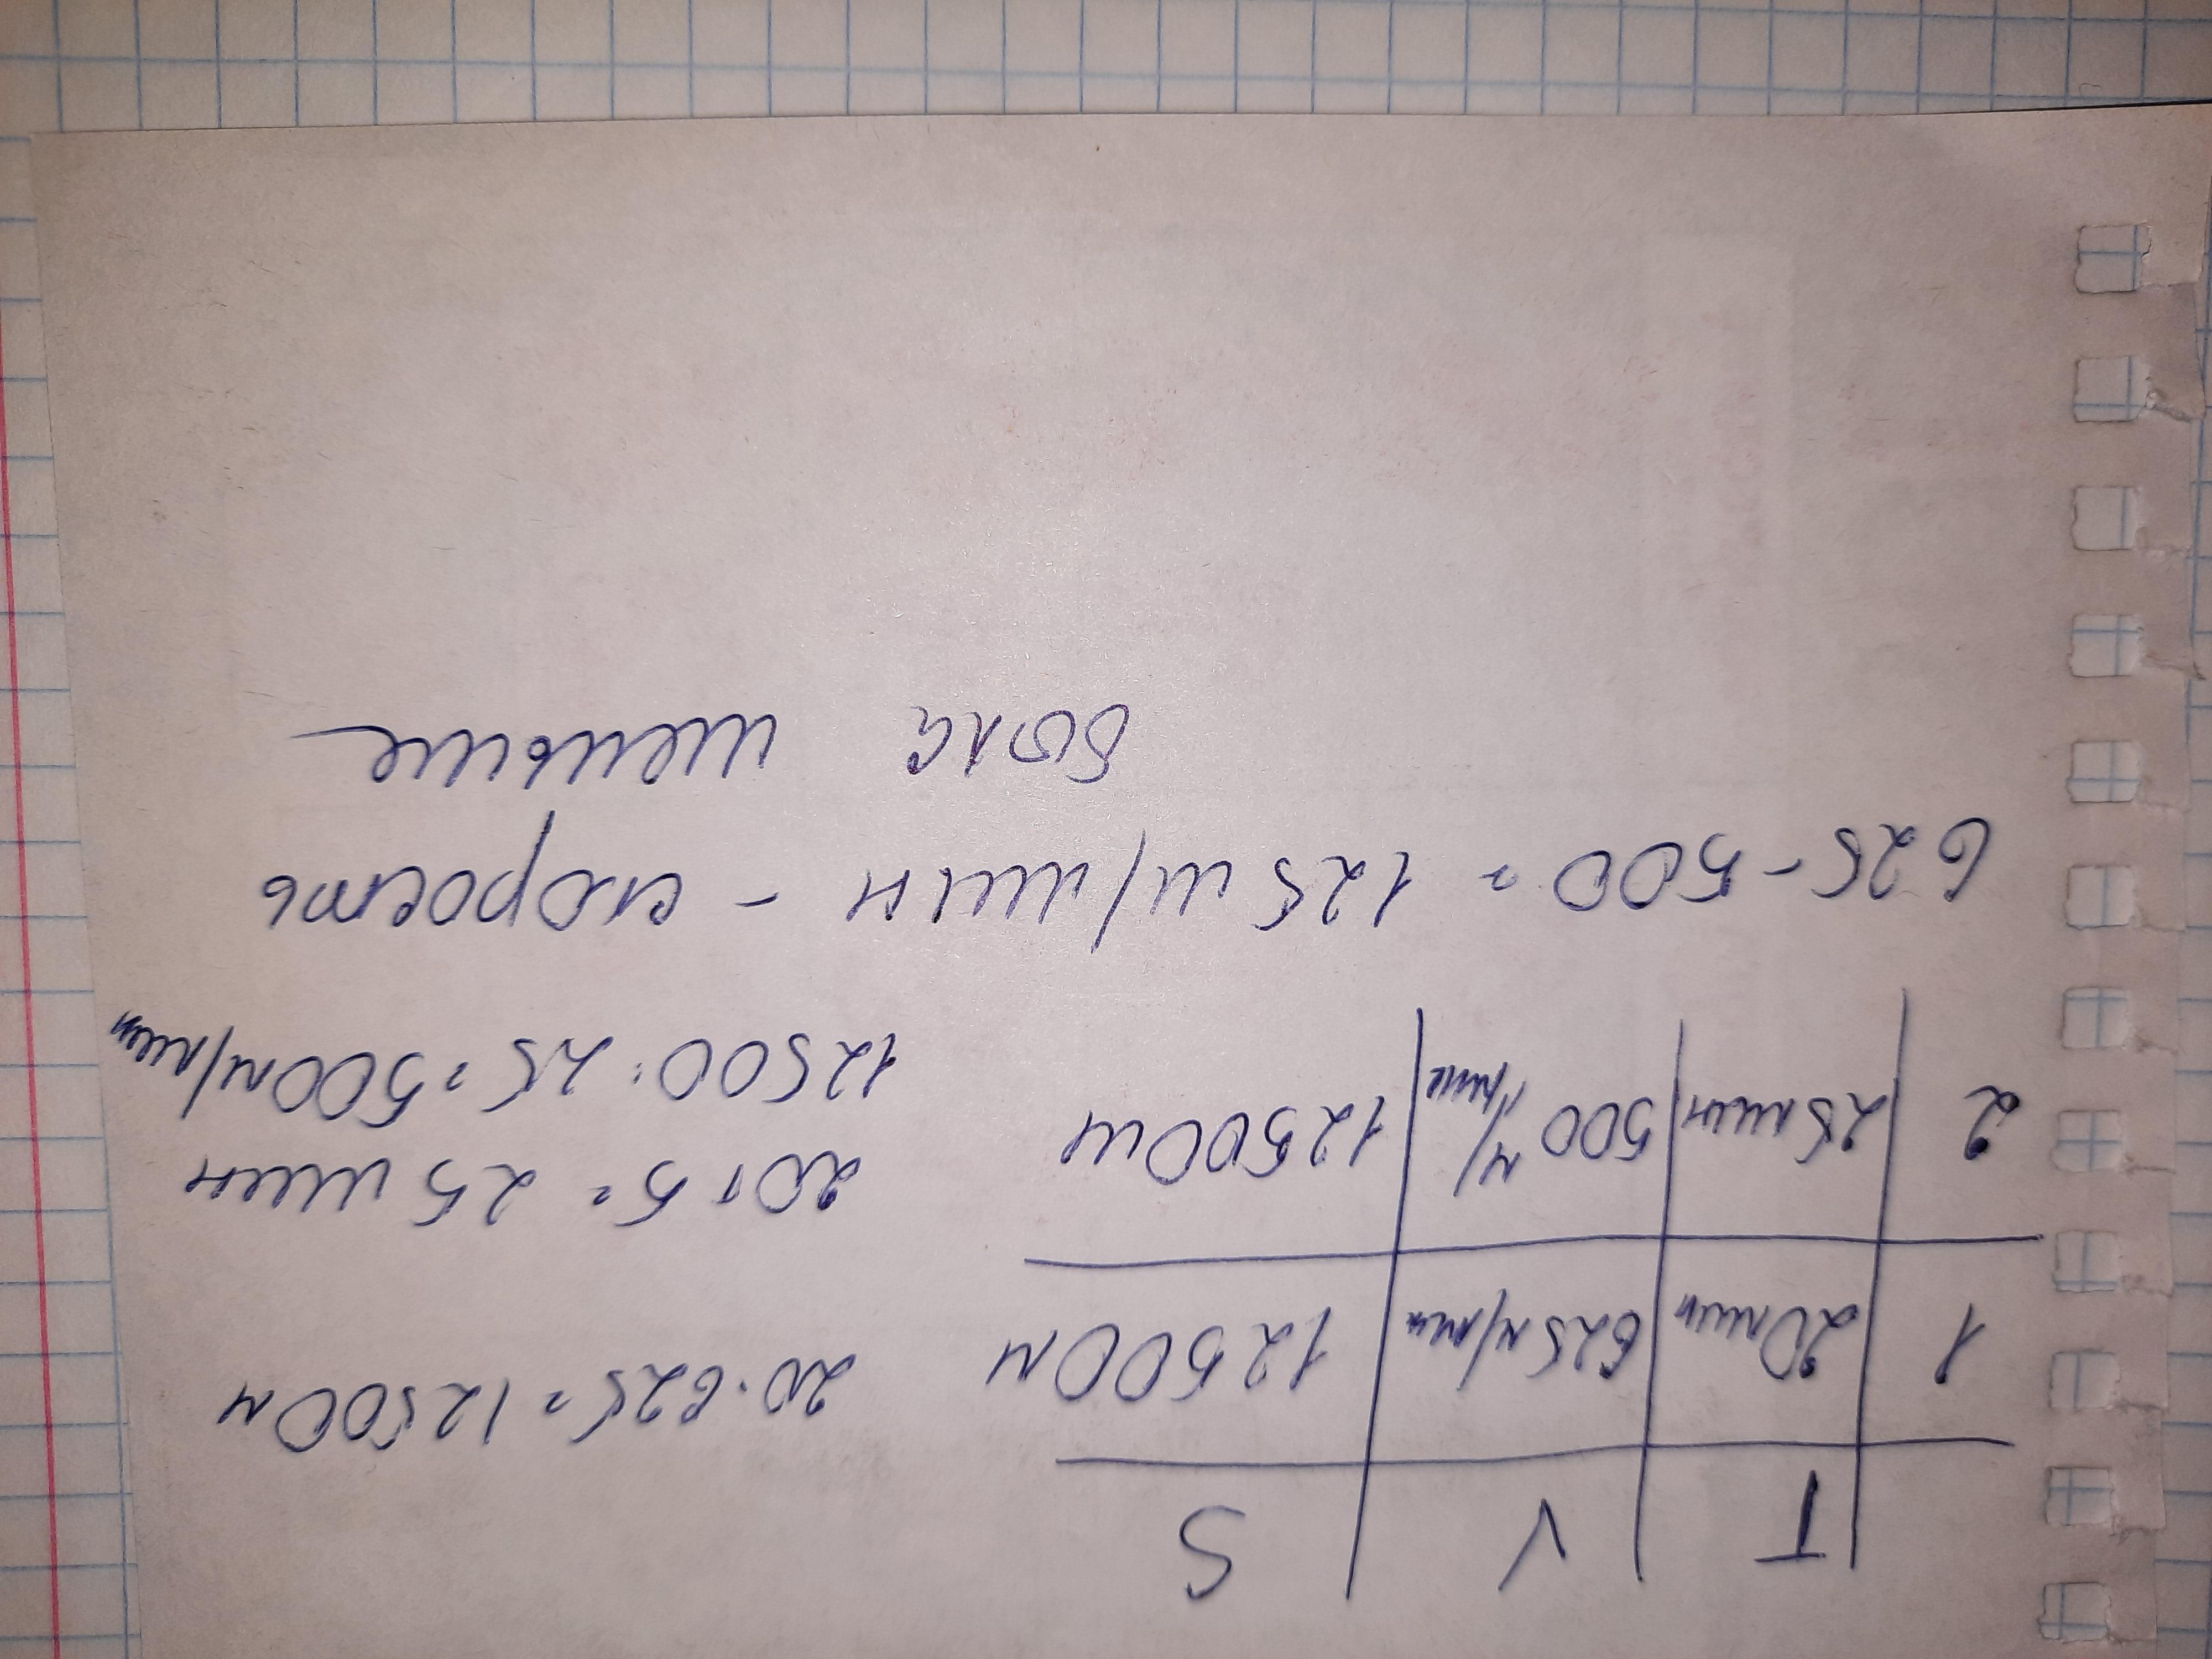 T V S
1 20мин 625м/мин 12500м 20·625=12500м
2 25мин 500 м/мин 12500м 20+5=25мин
12500:25=500м/мин
625-500=125м/мин - скорость
была меньше